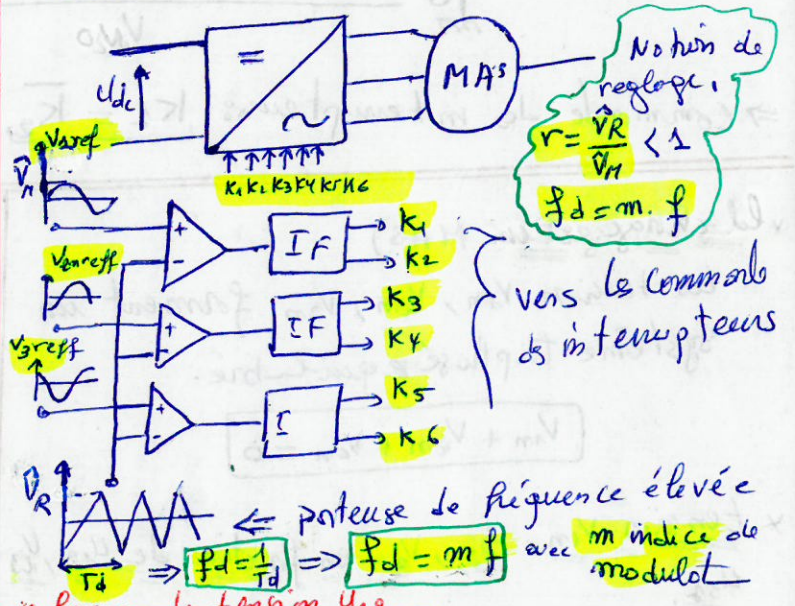 Udc
=
~
MAS
Notion de
reglage.
r = V̂R / V̂M < 1
fd = m. f
K1 K2 K3 K4 K5 K6
V1ref
V̂M
+
-
IF
K1
K2
V2nreff
+
-
IF
K3
K4
V3reff
+
-
I
K5
K6
vers les commande
ds interrupteurs
V̂R
Td
<= porteuse de fréquence élevée
=> fd = 1/Td => fd = m f avec m indice de
modulot
Vm + V